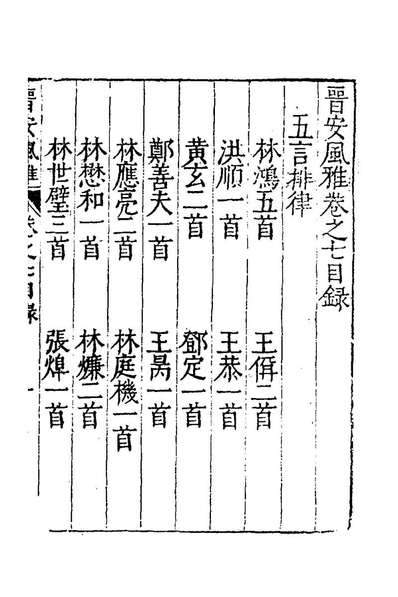 晉安風雅卷之七目録
五言排律
林鴻五首 王偁二首
洪順一首 王恭一首
黄玄二首 鄧定一首
鄭善夫一首 王昺一首
林應亮二首 林庭機一首
林懋和一首 林燫二首
林世璧三首 張煒一首
晉安風雅 卷之七目録 一